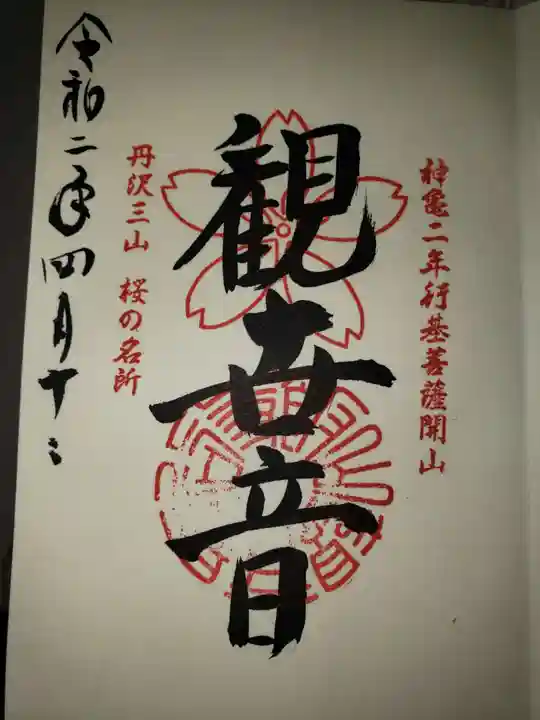 神亀二年行基菩薩開山
観世音
丹沢三山 桜の名所
令和二年四月十